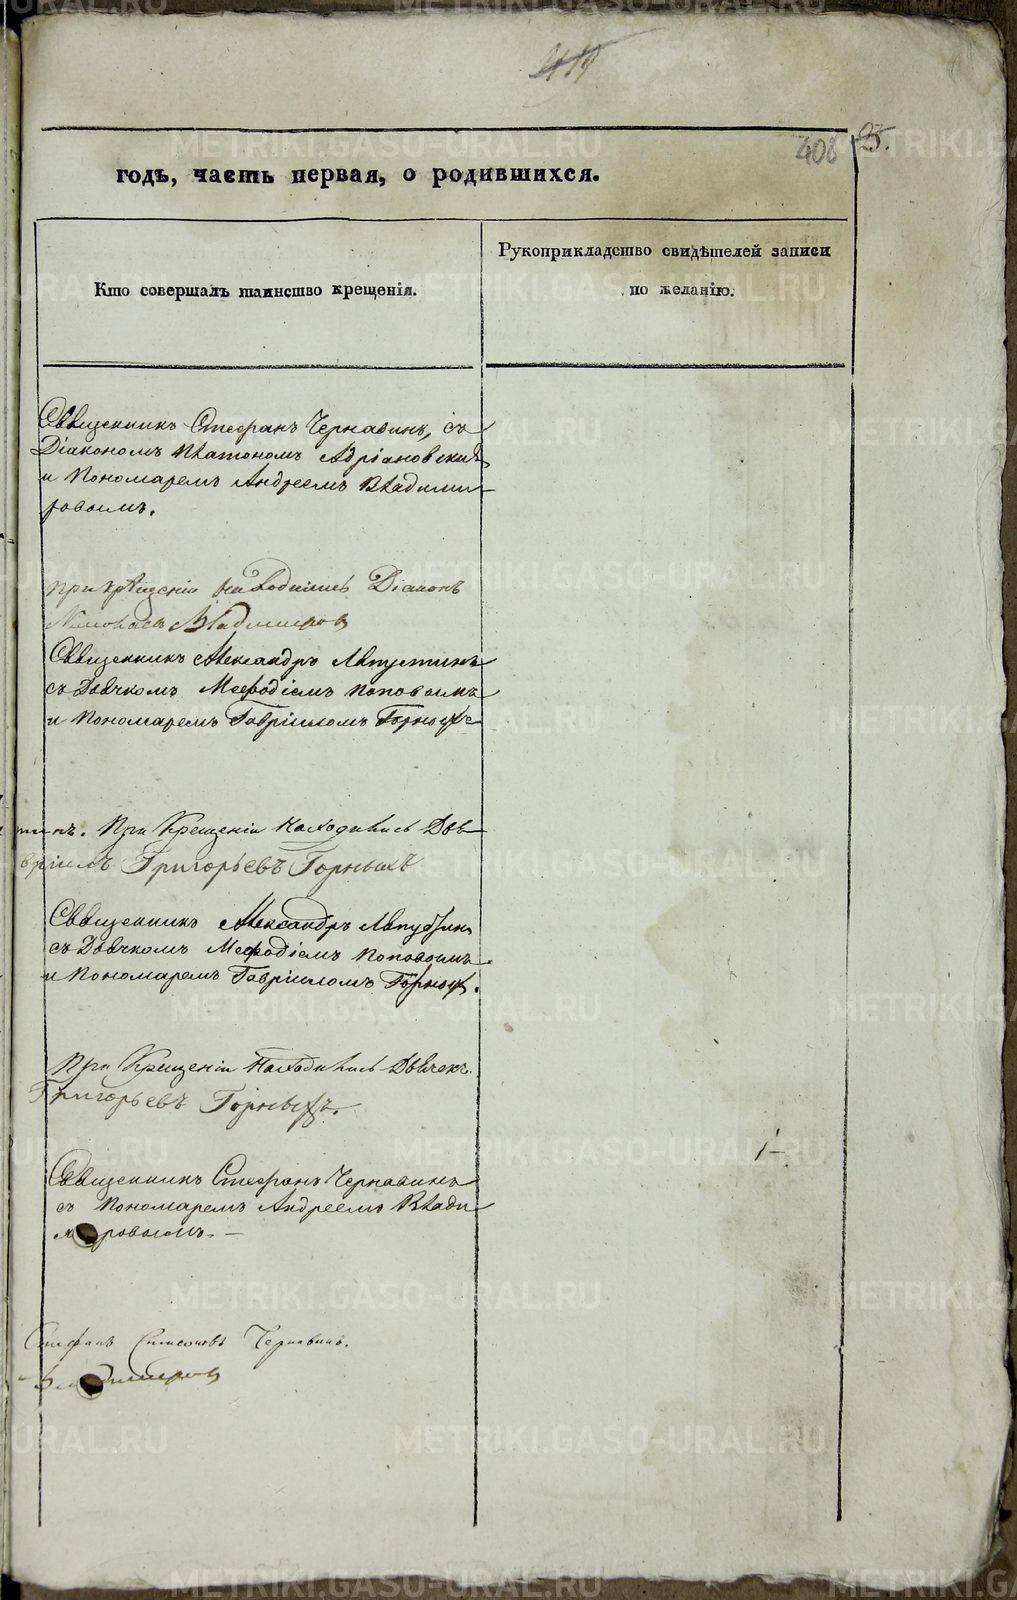 419
408
25.
годъ, часть первая, о родившихся.
Кто совершалъ таинство крещенія.
Рукоприкладство свидѣтелей записи
по желанію.
Священникъ Стефанъ Чернавинъ, съ
Діакономъ Платономъ Адріановскимъ
и Пономаремъ Андреемъ Влади-
ровымъ.
при крещеніи находились Діаконъ
Владимировъ
Священникъ Александръ Августинъ
съ Дьячкомъ Меѳодіемъ Поповымъ
и Пономаремъ Гавріиломъ Горныхъ
тинъ. При Крещеніи находились Дья-
вріилъ Григорьевъ Горныхъ
Священникъ Александръ Августинъ
съ Дьячкомъ Меѳодіемъ Поповымъ
и Пономаремъ Гавріиломъ Горных.
При Крещеніи Находились Дьячекъ
Григорьевъ Горныхъ.
Священникъ Стефанъ Чернавинъ
съ Пономаремъ Андреемъ Влади
мровымъ. —
Стефанъ Симеоновъ Чернавинъ.
Владимировъ
METRIKI.GASO-URAL.RU